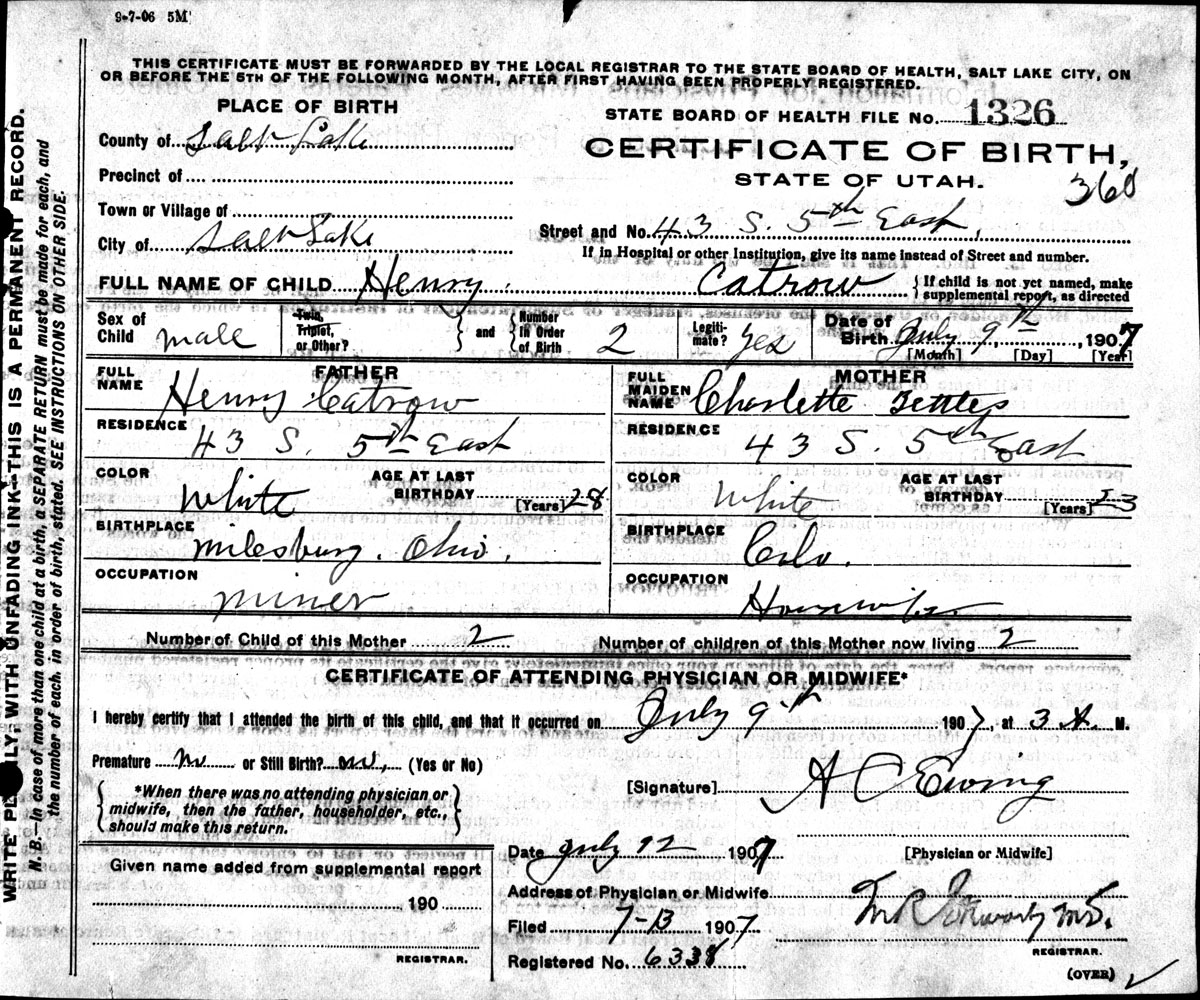 9-7-06 5M
THIS CERTIFICATE MUST BE FORWARDED BY THE LOCAL REGISTRAR TO THE STATE BOARD OF HEALTH, SALT LAKE CITY, ON
OR BEFORE THE 5TH OF THE FOLLOWING MONTH, AFTER FIRST HAVING BEEN PROPERLY REGISTERED.
PLACE OF BIRTH
County of Salt Lake
Precinct of
Town or Village of
City of Salt Lake
STATE BOARD OF HEALTH FILE No. 1326
CERTIFICATE OF BIRTH,
STATE OF UTAH.
360
Street and No. 43 S. 5th East,
If in Hospital or other Institution, give its name instead of Street and number.
FULL NAME OF CHILD Henry Catrow { If child is not yet named, make
supplemental report, as directed
Sex of Child male
Twin, Triplet, or Other? } and { Number in Order of Birth 2
Legitimate? Yes
Date of Birth July 9th, 1907
[Month] [Day] [Year]
FATHER
FULL NAME Henry Catrow
RESIDENCE 43 S. 5th East
COLOR White AGE AT LAST BIRTHDAY 28 [Years]
BIRTHPLACE Milesburg. Ohio.
OCCUPATION miner
MOTHER
FULL MAIDEN NAME Charlette
RESIDENCE 43 S. 5th East
COLOR White AGE AT LAST BIRTHDAY 23 [Years]
BIRTHPLACE Colo.
OCCUPATION Housewife
Number of Child of this Mother 2 Number of children of this Mother now living 2
CERTIFICATE OF ATTENDING PHYSICIAN OR MIDWIFE*
I hereby certify that I attended the birth of this child, and that it occurred on July 9th 1907, at 3 A. M.
Premature no or Still Birth? no, (Yes or No)
{ *When there was no attending physician or
midwife, then the father, householder, etc.,
should make this return. }
[Signature] A C Ewing
[Physician or Midwife]
Given name added from supplemental report
190
REGISTRAR.
Date July 12 1907
Address of Physician or Midwife
Filed 7-13 1907
Registered No. 6338
M.D.
REGISTRAR.
(OVER)
WRITE PLAINLY, WITH UNFADING INK—THIS IS A PERMANENT RECORD.
N. B.—In case of more than one child at a birth, a SEPARATE RETURN must be made for each, and
the number of each, in order of birth, stated. SEE INSTRUCTIONS ON OTHER SIDE.